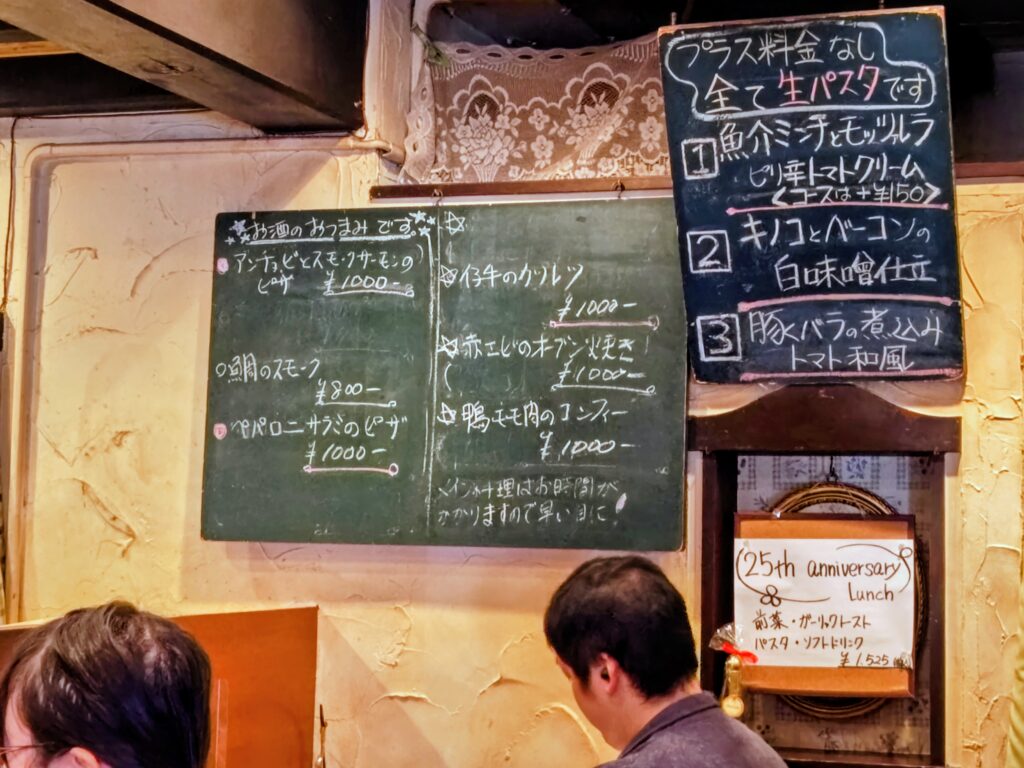 お酒のおつまみです。
アンチョビとスモークサーモンの
ピザ ¥1000-
鯛のスモーク
¥800-
ペパロニサラミのピザ
¥1000-
仔牛のカツレツ
¥1000-
赤エビのオーブン焼き
¥1000-
鴨モモ肉のコンフィー
¥1000-
メイン料理はお時間が
かかりますので早い目に!
プラス料金なし
全て生パスタです
1 魚介ミンチとモッツァレラ
ピリ辛トマトクリーム
<コースは+¥150>
2 キノコとベーコンの
白味噌仕立
3 豚バラの煮込み
トマト和風
25th anniversary
Lunch
前菜・ガーリックトースト
パスタ・ソフトドリンク
¥1,525